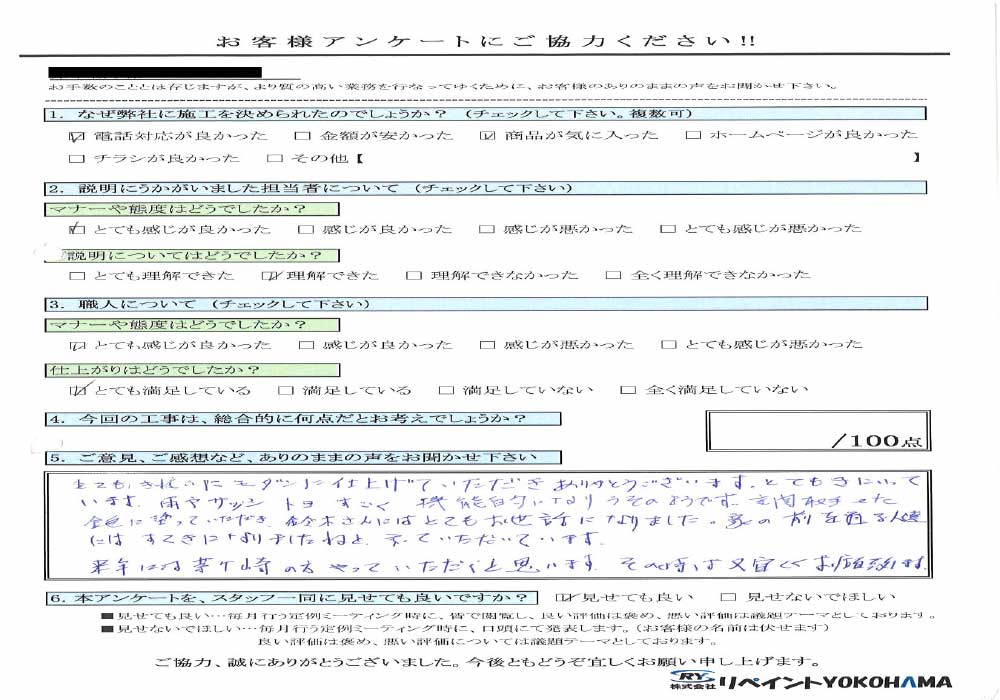 お客様アンケートにご協力ください!!
お手数のこととは存じますが、より質の高い業務を行なってゆくために、お客様のありのままの声をお聞かせ下さい。
1. なぜ弊社に施工を決められたのでしょうか？（チェックして下さい。複数可）
☑ 電話対応が良かった □ 金額が安かった ☑ 商品が気に入った □ ホームページが良かった
□ チラシが良かった □ その他【 】
2. 説明にうかがいました担当者について （チェックして下さい）
マナーや態度はどうでしたか？
☑ とても感じが良かった □ 感じが良かった □ 感じが悪かった □ とても感じが悪かった
説明についてはどうでしたか？
□ とても理解できた ☑ 理解できた □ 理解できなかった □ 全く理解できなかった
3. 職人について （チェックして下さい）
マナーや態度はどうでしたか？
☑ とても感じが良かった □ 感じが良かった □ 感じが悪かった □ とても感じが悪かった
仕上がりはどうでしたか？
☑ とても満足している □ 満足している □ 満足していない □ 全く満足していない
4. 今回の工事は、総合的に何点だとお考えでしょうか？
/100点
5. ご意見、ご感想など、ありのままの声をお聞かせ下さい
とてもきれいにモダンに仕上げていただきありがとうございます。とても気に入って
います。雨やサッシ すごく 機能的になりうそのようです。玄関
塗っていただき 鈴木さんにはとてもお世話になりました。家の前を通る人達
にはすてきになりましたねと言っていただいています。
来年には茅ケ崎の方やっていただくと思います。その時は又宜しくお願い致します。
6. 本アンケートを、スタッフ一同に見せても良いですか？ ☑ 見せても良い □ 見せないでほしい
■見せても良い…毎月行う定例ミーティング時に、皆で閲覧し、良い評価は褒め、悪い評価は議題テーマとしております。
■見せないでほしい…毎月行う定例ミーティング時に、口頭にて発表します。（お客様の名前は伏せます）
良い評価は褒め、悪い評価については議題テーマとしております。
ご協力、誠にありがとうございました。今後ともどうぞ宜しくお願い申し上げます。
RY 株式会社 リペイントYOKOHAMA